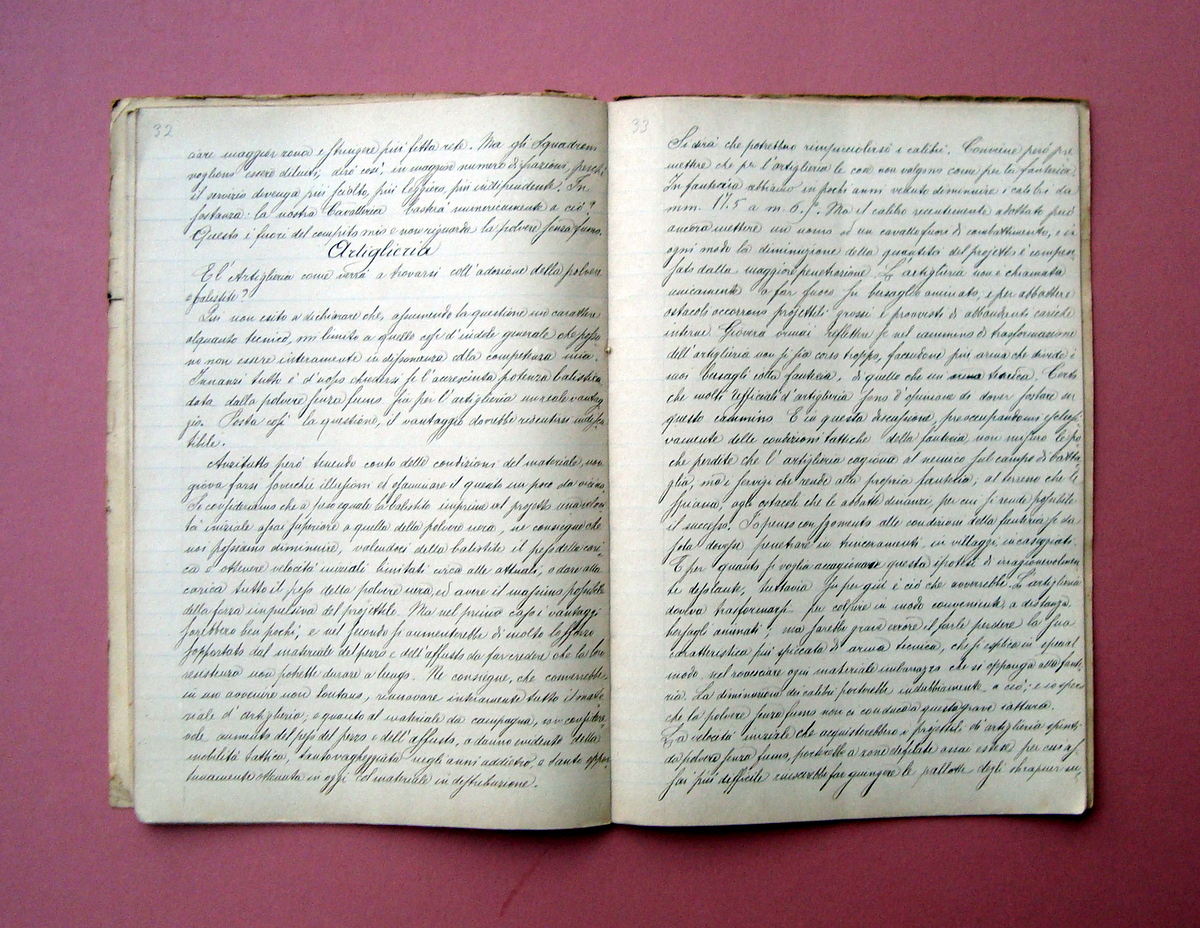 32
ciare maggior zona e stringere più fitta rete. Ma gli Squadroni
vogliono essere diluiti, dirò così, in maggior numero di frazioni, perchè
il servizio divenga più sciolto, più leggiero, più indipendente. In
sostanza: la nostra Cavalleria basterà numericamente a ciò?
Questo è fuori del compito mio e non riguarda la polvere senza fumo.
Artiglieria
E l'Artiglieria come verrà a trovarsi coll'adozione della polvere
e balistite?
Qui non esito a dichiarare che, assumendo la questione un carattere
alquanto tecnico, mi limito a quelle cose d'indole generale che posso
no non essere interamente in dissonanza alla competenza mia.
Innanzi tutto è d'uopo chiedersi se l'accresciuta potenza balistica
data dalla polvere senza fumo sia per l'artiglieria un reale vantag
gio. Posta così la questione, il vantaggio dovrebbe ritenersi indiscu
tibile.
Anzitutto però tenendo conto delle condizioni del materiale, non
giova farsi soverchie illusioni ed esaminare il quesito un poco da vicino.
Se consideriamo che a peso eguale la balistite imprime al projetto una veloci
tà iniziale assai superiore a quella della polvere nera, ne consegue che
noi possiamo diminuire, valendoci della balistite il peso delle cari
ca e ottenere velocità iniziali limitate circa alle attuali, o dare alla
carica tutto il peso della polvere nera, ed avere il massimo possibile
della forza impulsiva del projettile. Ma nel primo caso i vantaggi
sarebbero ben pochi, e nel secondo si aumenterebbe di molto lo sforzo
sopportato dal materiale del pezzo e dell'affusto da far credere che la loro
resistenza non potrebbe durare a lungo. Ne consegue, che converrebbe
in un avvenire non lontano, rinnovare interamente tutto il mate
riale d'artiglieria; e quanto al materiale da campagna, con considere
vole aumento del peso del pezzo e dell'affusto, a danno evidente della
mobilità tattica, tanto vagheggiata negli anni addietro, e tanto oppor
tunamente ottenuta in oggi col materiale in distribuzione.
33
Si dirà che potrebbero rimpicciolirsi i calibri. Conviene però pre
mettere che per l'artiglieria le cose non valgono come per la fanteria.
In fanteria abbiamo in pochi anni veduto diminuire i calibri da
mm. 17.5 a m. 6.5. Ma il calibro recentemente adottato può
ancora mettere un uomo od un cavallo fuori di combattimento, e in
ogni modo la diminuzione della quantità dei projetti è compen
sata dalla maggiore penetrazione. L'artiglieria non è chiamata
unicamente a far fuoco su bersaglio animato, e per abbattere
ostacoli occorrono projettili grossi e provvisti di abbondanti cariche
interne. Gioverà ormai riflettere se nel cammino di trasformazione
dell'artiglieria non si sia corso troppo, facendone più arma che divide i
suoi bersagli colla fanteria, di quello che un arma tecnica. Certo
che molti Ufficiali d'artiglieria sono d'opinione di dover sostare in
questo cammino. E in questa discussione, preoccupandomi esclusi
vamente delle condizioni tattiche della fanteria non misuro le po
che perdite che l'artiglieria cagiona al nemico sul campo di batta
glia, ma i servizi che rende alla propria fanteria; al terreno che le
spiana, agli ostacoli che le abbatte dinanzi, per cui si rende possibile
il successo. Io penso con sgomento alle condizioni della fanteria se da
sola dovesse penetrare in trinceramenti, in villaggi, in caseggiati.
E per quanto si voglia accagionare questa ipotesi di irragionevolmen
te desolante, tuttavia su per giù è ciò che avverrebbe. L'artiglieria
doveva trasformarsi per colpire in modo conveniente, a distanza
bersagli animati, ma sarebbe grave errore il farle perdere la sua
caratteristica più spiccata di arma tecnica, che si esplica in special
modo, nel rovesciare ogni materiale imbarazzo che si opponga alla fante
ria. La diminuzione dei calibri porterebbe indubbiamente a ciò; e io spero
che la polvere senza fumo non ci conducarà questa grave iattura.
La velocità iniziale che acquisterebbero i projettili di artiglieria spinti
da polvere senza fumo, porterebbe a zone defilate assai estese per cui as
sai più difficile riuscirebbe far giungere le pallette degli shrapnel su,